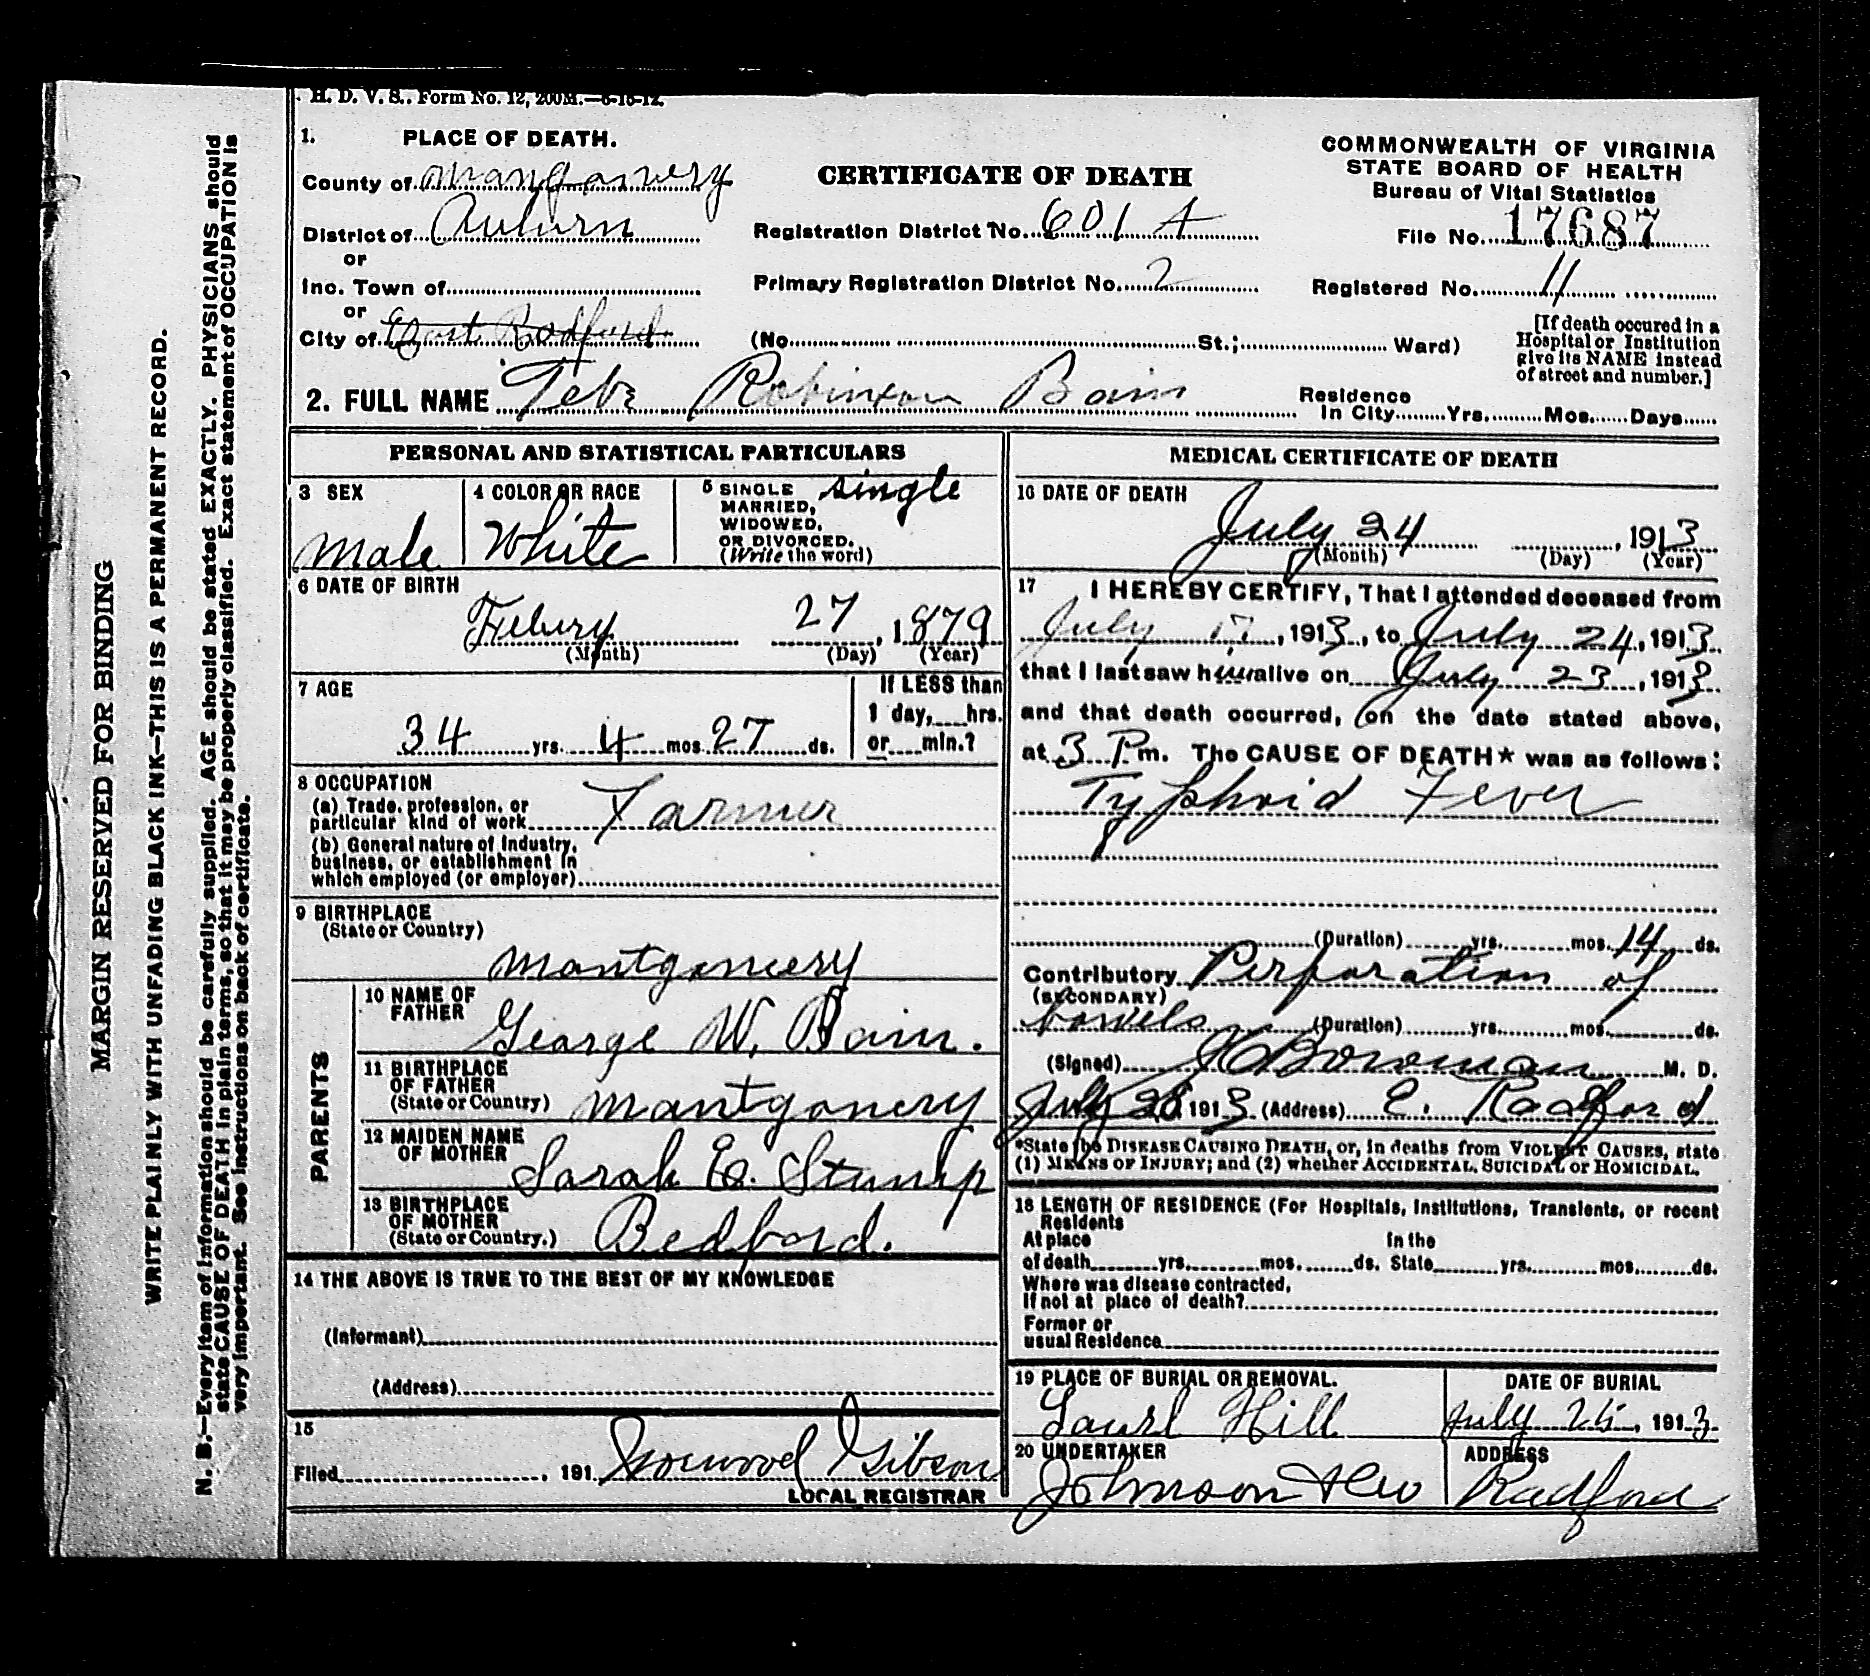 H. D. V. S., Form No. 12, 200M.—6-15-12.
1. PLACE OF DEATH.
County of Mongomery
District of Auburn
or
Inc. Town of
or
City of East Radford
CERTIFICATE OF DEATH
Registration District No. 601 A
Primary Registration District No. 2
(No. St.; Ward)
COMMONWEALTH OF VIRGINIA
STATE BOARD OF HEALTH
Bureau of Vital Statistics
File No. 17687
Registered No. 11
[If death occured in a
Hospital or Institution
give its NAME instead
of street and number.]
2. FULL NAME Robinson Bain
Residence
In City Yrs. Mos. Days
PERSONAL AND STATISTICAL PARTICULARS
3 SEX
Male
4 COLOR OR RACE
White
5 SINGLE
MARRIED,
WIDOWED,
OR DIVORCED.
(Write the word)
single
6 DATE OF BIRTH
Febury 27, 1879
(Month) (Day) (Year)
7 AGE
34 yrs. 4 mos. 27 ds.
If LESS than
1 day, hrs.
or min.?
8 OCCUPATION
(a) Trade, profession, or
particular kind of work Farmer
(b) General nature of Industry,
business, or establishment in
which employed (or employer)
9 BIRTHPLACE
(State or Country)
Montgomery
PARENTS
10 NAME OF
FATHER
George W. Bain.
11 BIRTHPLACE
OF FATHER
(State or Country) Montgonery
12 MAIDEN NAME
OF MOTHER
Sarah E. Stump
13 BIRTHPLACE
OF MOTHER
(State or Country.) Bedford.
14 THE ABOVE IS TRUE TO THE BEST OF MY KNOWLEDGE
(Informant)
(Address)
15
Filed , 191 Norwood Gibson
LOCAL REGISTRAR
MEDICAL CERTIFICATE OF DEATH
16 DATE OF DEATH
July 24 , 1913
(Month) (Day) (Year)
17 I HEREBY CERTIFY, That I attended deceased from
July 17, 1913, to July 24, 1913
that I last saw him alive on July 23, 1913
and that death occurred, on the date stated above,
at 3 P.m. The CAUSE OF DEATH★ was as follows:
Typhoid Fever
(Duration) yrs. mos. 14 ds.
Contributory Perforation of
(SECONDARY)
bowels (Duration) yrs. mos. ds.
(Signed) Bowman M. D.
July 26 1913 (Address) E. Radford
*State the DISEASE CAUSING DEATH, or, in deaths from VIOLENT CAUSES, state
(1) MEANS OF INJURY; and (2) whether ACCIDENTAL, SUICIDAL or HOMICIDAL.
18 LENGTH OF RESIDENCE (For Hospitals, Institutions, Transients, or recent
Residents
At place In the
of death yrs. mos. ds. State yrs. mos. ds.
Where was disease contracted,
If not at place of death?
Former or
usual Residence
19 PLACE OF BURIAL OR REMOVAL.
Laurl Hill
DATE OF BURIAL
July 25, 1913
20 UNDERTAKER
Johnson & Co
ADDRESS
Radford
MARGIN RESERVED FOR BINDING
WRITE PLAINLY WITH UNFADING BLACK INK—THIS IS A PERMANENT RECORD.
N. B.—Every item of information should be carefully supplied. AGE should be stated EXACTLY. PHYSICIANS should
state CAUSE OF DEATH in plain terms, so that it may be properly classified. Exact statement of OCCUPATION is
very important. See instructions on back of certificate.